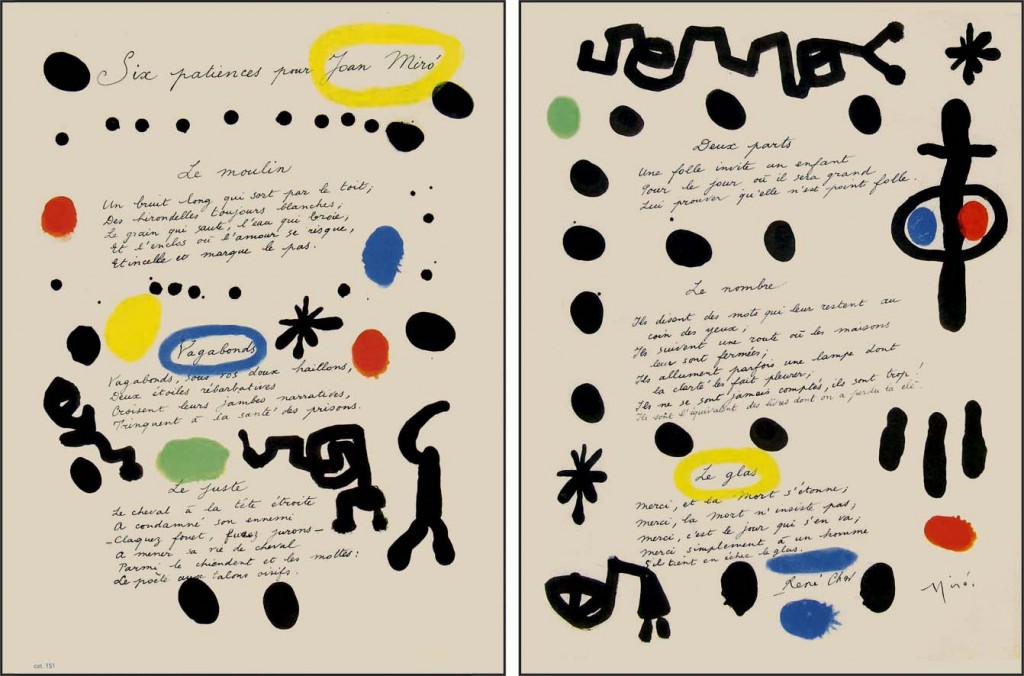 Six patiences pour Joan Miró
Le moulin
Un bruit long qui sort par le toit;
Des hirondelles toujours blanches;
Le grain qui saute, l'eau qui broie,
Et l'enclos où l'amour se risque,
Etincelle et marque le pas.
Vagabonds
Vagabonds, sous vos doux haillons,
Deux étoiles rébarbatives
Croisent leurs jambes narratives,
Trinquent à la santé des prisons.
Le juste
Le cheval à la tête étroite
A condamné son ennemi
- Claquez fouet, fusez jurons -
A mener sa vie de cheval
Parmi le chiendent et les mottes:
Le poète aux talons oisifs.
cat. 151
Deux parts
Une folle invite un enfant
Pour le jour où il sera grand
Lui prouver qu'elle n'est point folle.
Le nombre
Ils disent des mots qui leur restent au
coin des yeux;
Ils suivent une route où les maisons
leur sont fermées;
Ils allument parfois une lampe dont
la clarté les fait pleurer;
Ils ne se sont jamais comptés, ils sont trop!
Ils sont l'équivalent des livres dont on a perdu la clé.
Le glas
Merci, et la Mort s'étonne;
Merci, la Mort n'insiste pas;
Merci, c'est le jour qui s'en va;
Merci simplement à un homme
S'il tient en échec le glas.
René Char
Miró.